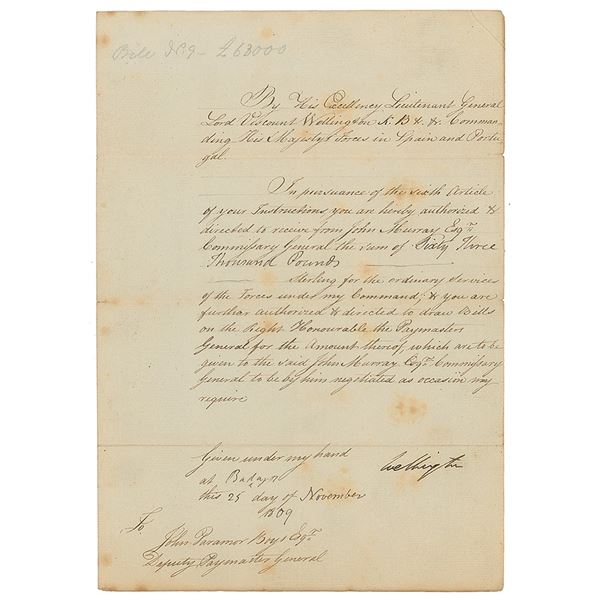 Bill No. 9 - £63000
By His Excellency Lieutenant General
Lord Viscount Wellington K. B &. & Comman-
ding His Majesty's Forces in Spain and Portu
gal.
In pursuance of the sixth Article
of your Instructions, you are hereby authorized &
directed to receive from John Murray Esqre
Commissary General the sum of Sixty Three
Thousand Pounds
Sterling for the ordinary Services
of the Forces under my Command; & you are
further authorized & directed to draw Bills
on the Right Honourable the Paymasters
General for the Amount thereof, which are to be
given to the said John Murray Esqre Commissary
General to be by him negotiated as occasion may
require
Given under my hand
at Badajoz
this 25 day of November
1809
Wellington
To
John Paramor Boys Esqre
Deputy Paymaster General